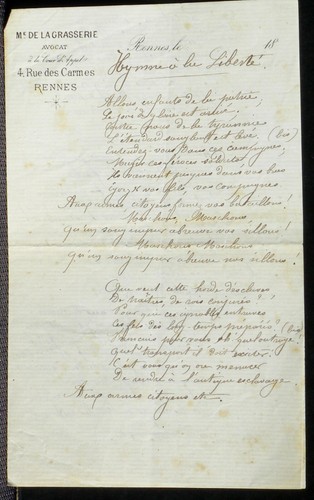 Me. DE LA GRASSERIE
AVOCAT
à la Cour d'Appel
4, Rue des Carmes
RENNES
Rennes, le 18
Hymne à la Liberté.
Allons, enfants de la patrie,
Le jour de gloire est arrivé,
Contre nous de la tyrannie
L'étendard sanglant est levé (bis)
Entendez-vous dans ces campagnes,
Mugir ces féroces soldats,
Ils viennent jusques dans vos bras
Egorger vos fils, vos compagnes.
Aux armes citoyens, formez vos bataillons!
Marchons, Marchons
Qu'un sang impur abreuve nos sillons!
Marchons, Marchons
Qu'un sang impur abreuve nos sillons!
Que veut cette horde d'esclaves
De traîtres, de rois conjurés?
Pour qui ces ignobles entraves
Ces fers dès long-temps préparés? (bis)
Français pour nous ah quel outrage!
Quel transport il doit exciter.
C'est nous qu'on ose menacer
De rendre à l'antique esclavage.
Aux armes citoyens etc.